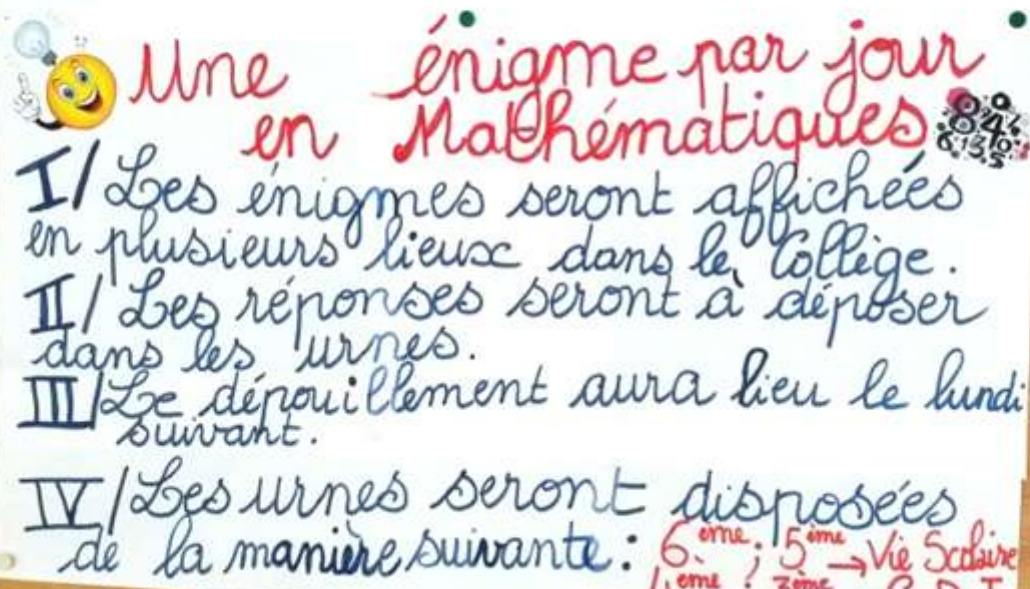 Une énigme par jour
en Mathématiques
I/ Les énigmes seront affichées
en plusieurs lieux dans le Collège.
II/ Les réponses seront à déposer
dans les urnes.
III/ Le dépouillement aura lieu le lundi
suivant.
IV/ Les urnes seront disposées
de la manière suivante : 6ème ; 5ème → Vie Scolaire
4ème ; 3ème